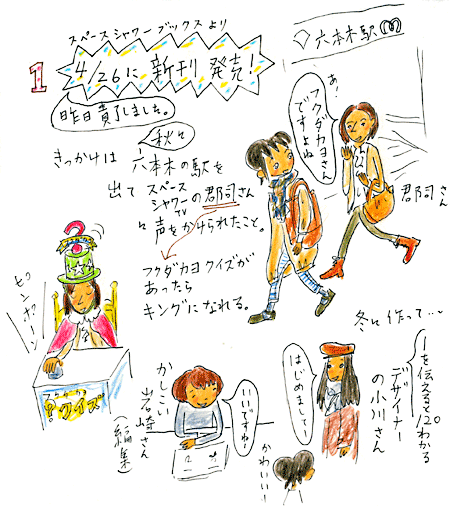 スペースシャワーブックスより
1
4/26に新刊発売!
昨日責了しました。
秋に
きっかけは
六本木の駅を
出て スペース
シャワーの郡司さん
TV
に声をかけられたこと。
フクダカヨクイズが
あったら
キングになれる。
◇六本木駅
あ!
フクダカヨさん
ですよね
郡司さん
ピンポーン
フクダカヨ
クイズ
かしこい
岩崎さん
(編集)
いいですね!
冬に作って…
1を伝えると120わかる
デザイナー
の小川さん
はじめまして!
かわいいー